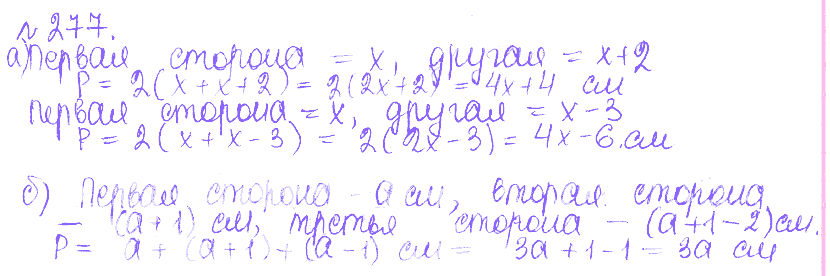 № 277.
а) Первая сторона = x, другая = x+2
P = 2(x+x+2) = 2(2x+2) = 4x+4 см
Первая сторона = x, другая = x-3
P = 2(x+x-3) = 2(2x-3) = 4x-6.см
б) Первая сторона - а см, вторая сторона
— (а+1) см, третья сторона - (а+1-2)см.
P = а + (а+1)+(а-1) см = 3а+1-1 = 3а см